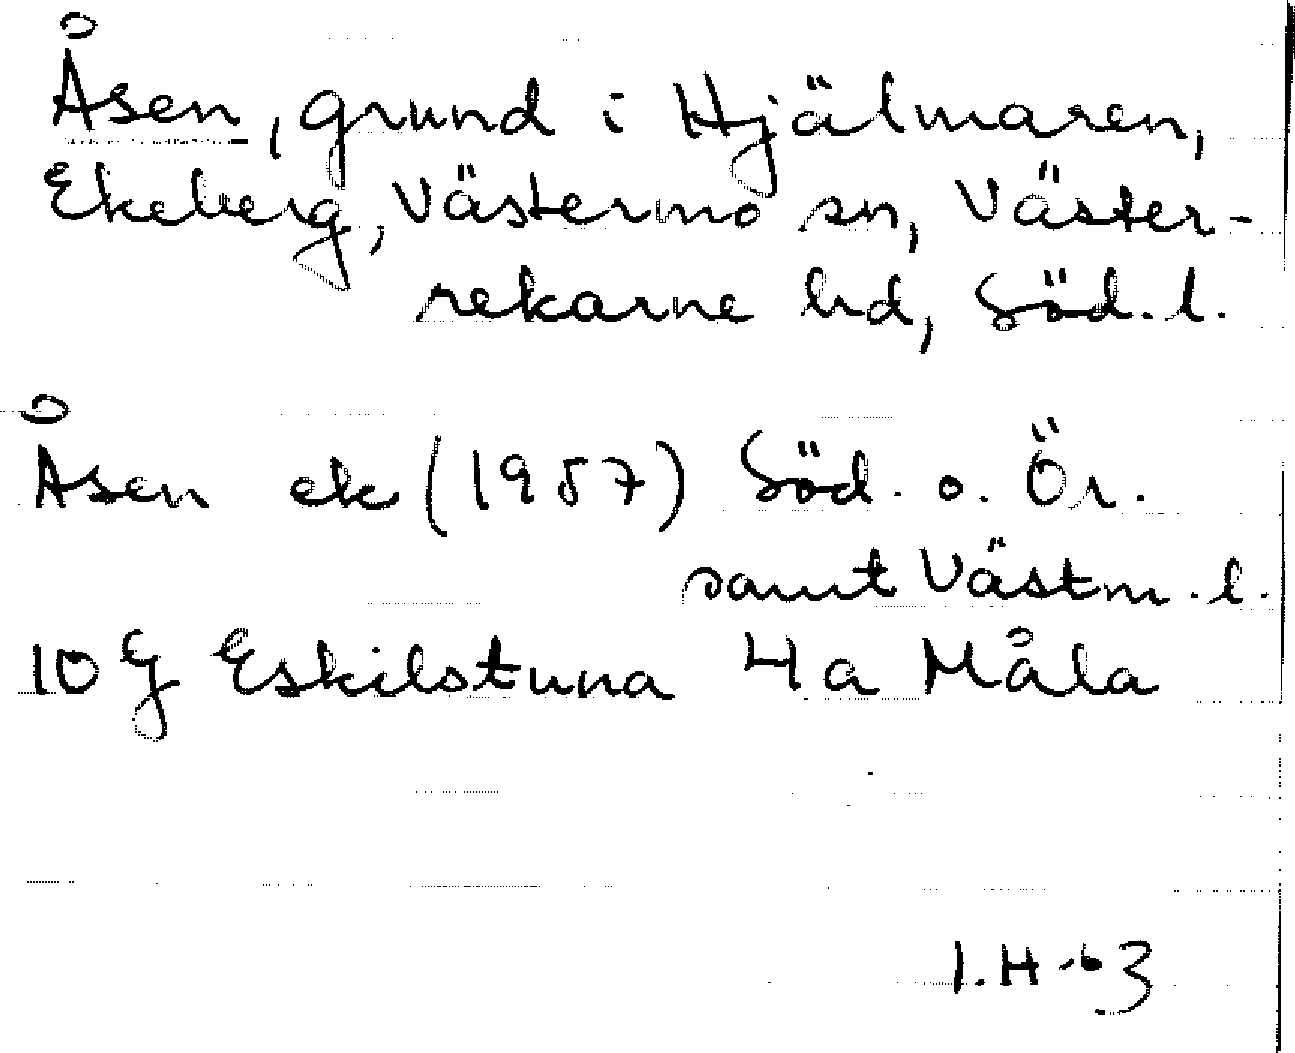 Åsen, grund i Hjälmaren,
Ekeberg, Västermo sn, Väster-
rekarne hd, Söd. l.
Åsen ek (1957) Söd. o. Ör.
samt Västm. l.
10 G Eskilstuna 4a Måla
I. H -63